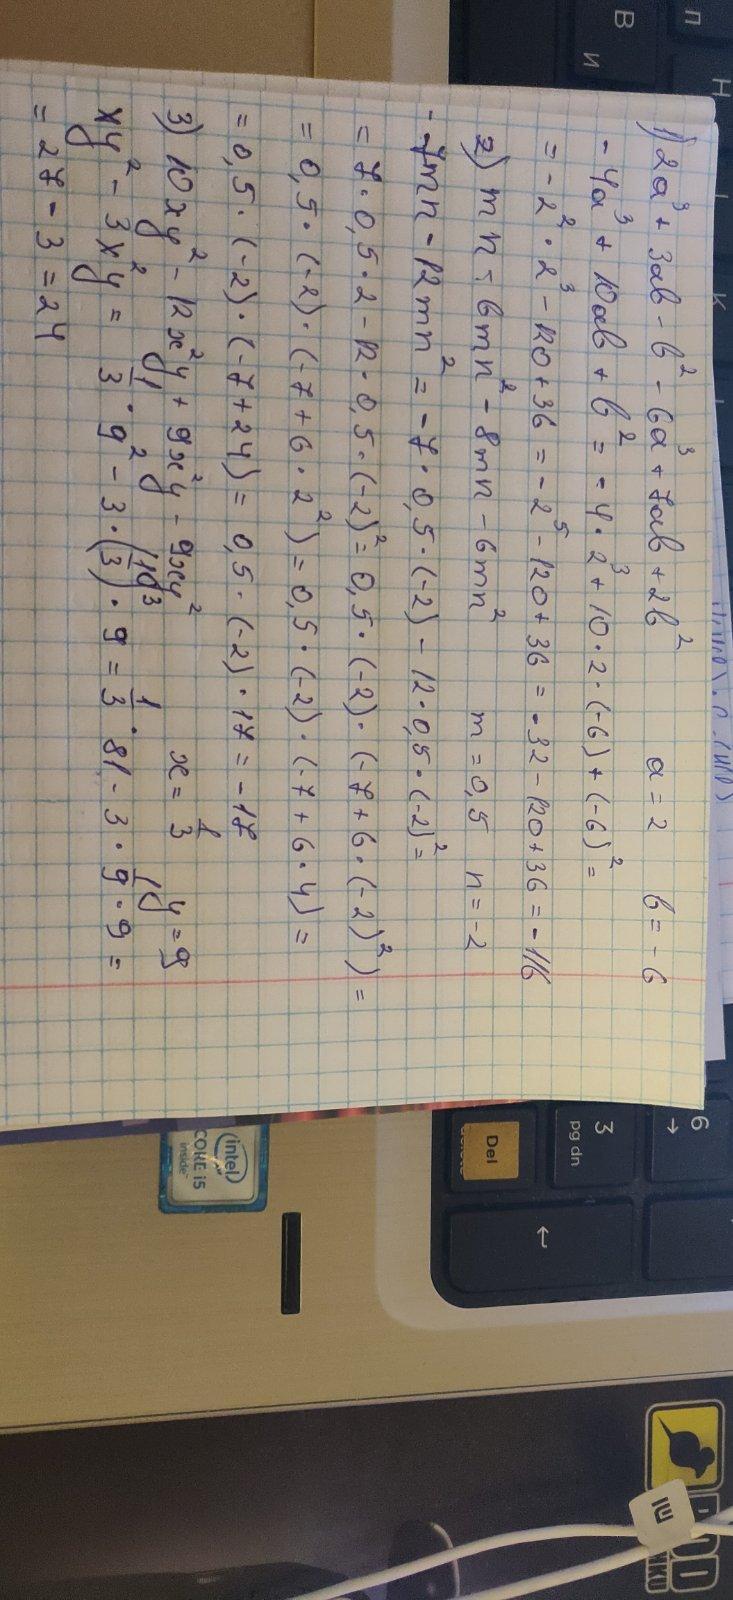 1) 2a³ + 3ab - b² - 6a³ + 7ab + 2b² a = 2 b = -6
- 4a³ + 10ab + b² = -4·2³ + 10·2·(-6) + (-6)² =
= -2²·2³ - 120 + 36 = -2⁵ - 120 + 36 = -32 - 120 + 36 = -116
2) mn - 6mn² - 8mn - 6mn² m = 0,5 n = -2
- 7mn - 12mn² = -7·0,5·(-2) - 12·0,5·(-2)² =
= 7·0,5·2 - 12·0,5·(-2)² = 0,5·(-2)·(-7 + 6·(-2)²) =
= 0,5·(-2)·(-7 + 6·2²) = 0,5·(-2)·(-7 + 6·4) =
= 0,5·(-2)·(-7 + 24) = 0,5·(-2)·17 = -17
3) 10xy² - 12x²y + 9x²y - 9xy² x = 1/3 y = 9
xy² - 3x²y = 1/3·9² - 3·(1/3)·9 = 1/3·81 - 3·1/9·9 =
= 27 - 3 = 24
П
Н
В
И
К
6
→
3
pg dn
Del
←
intel
CORE i5
inside